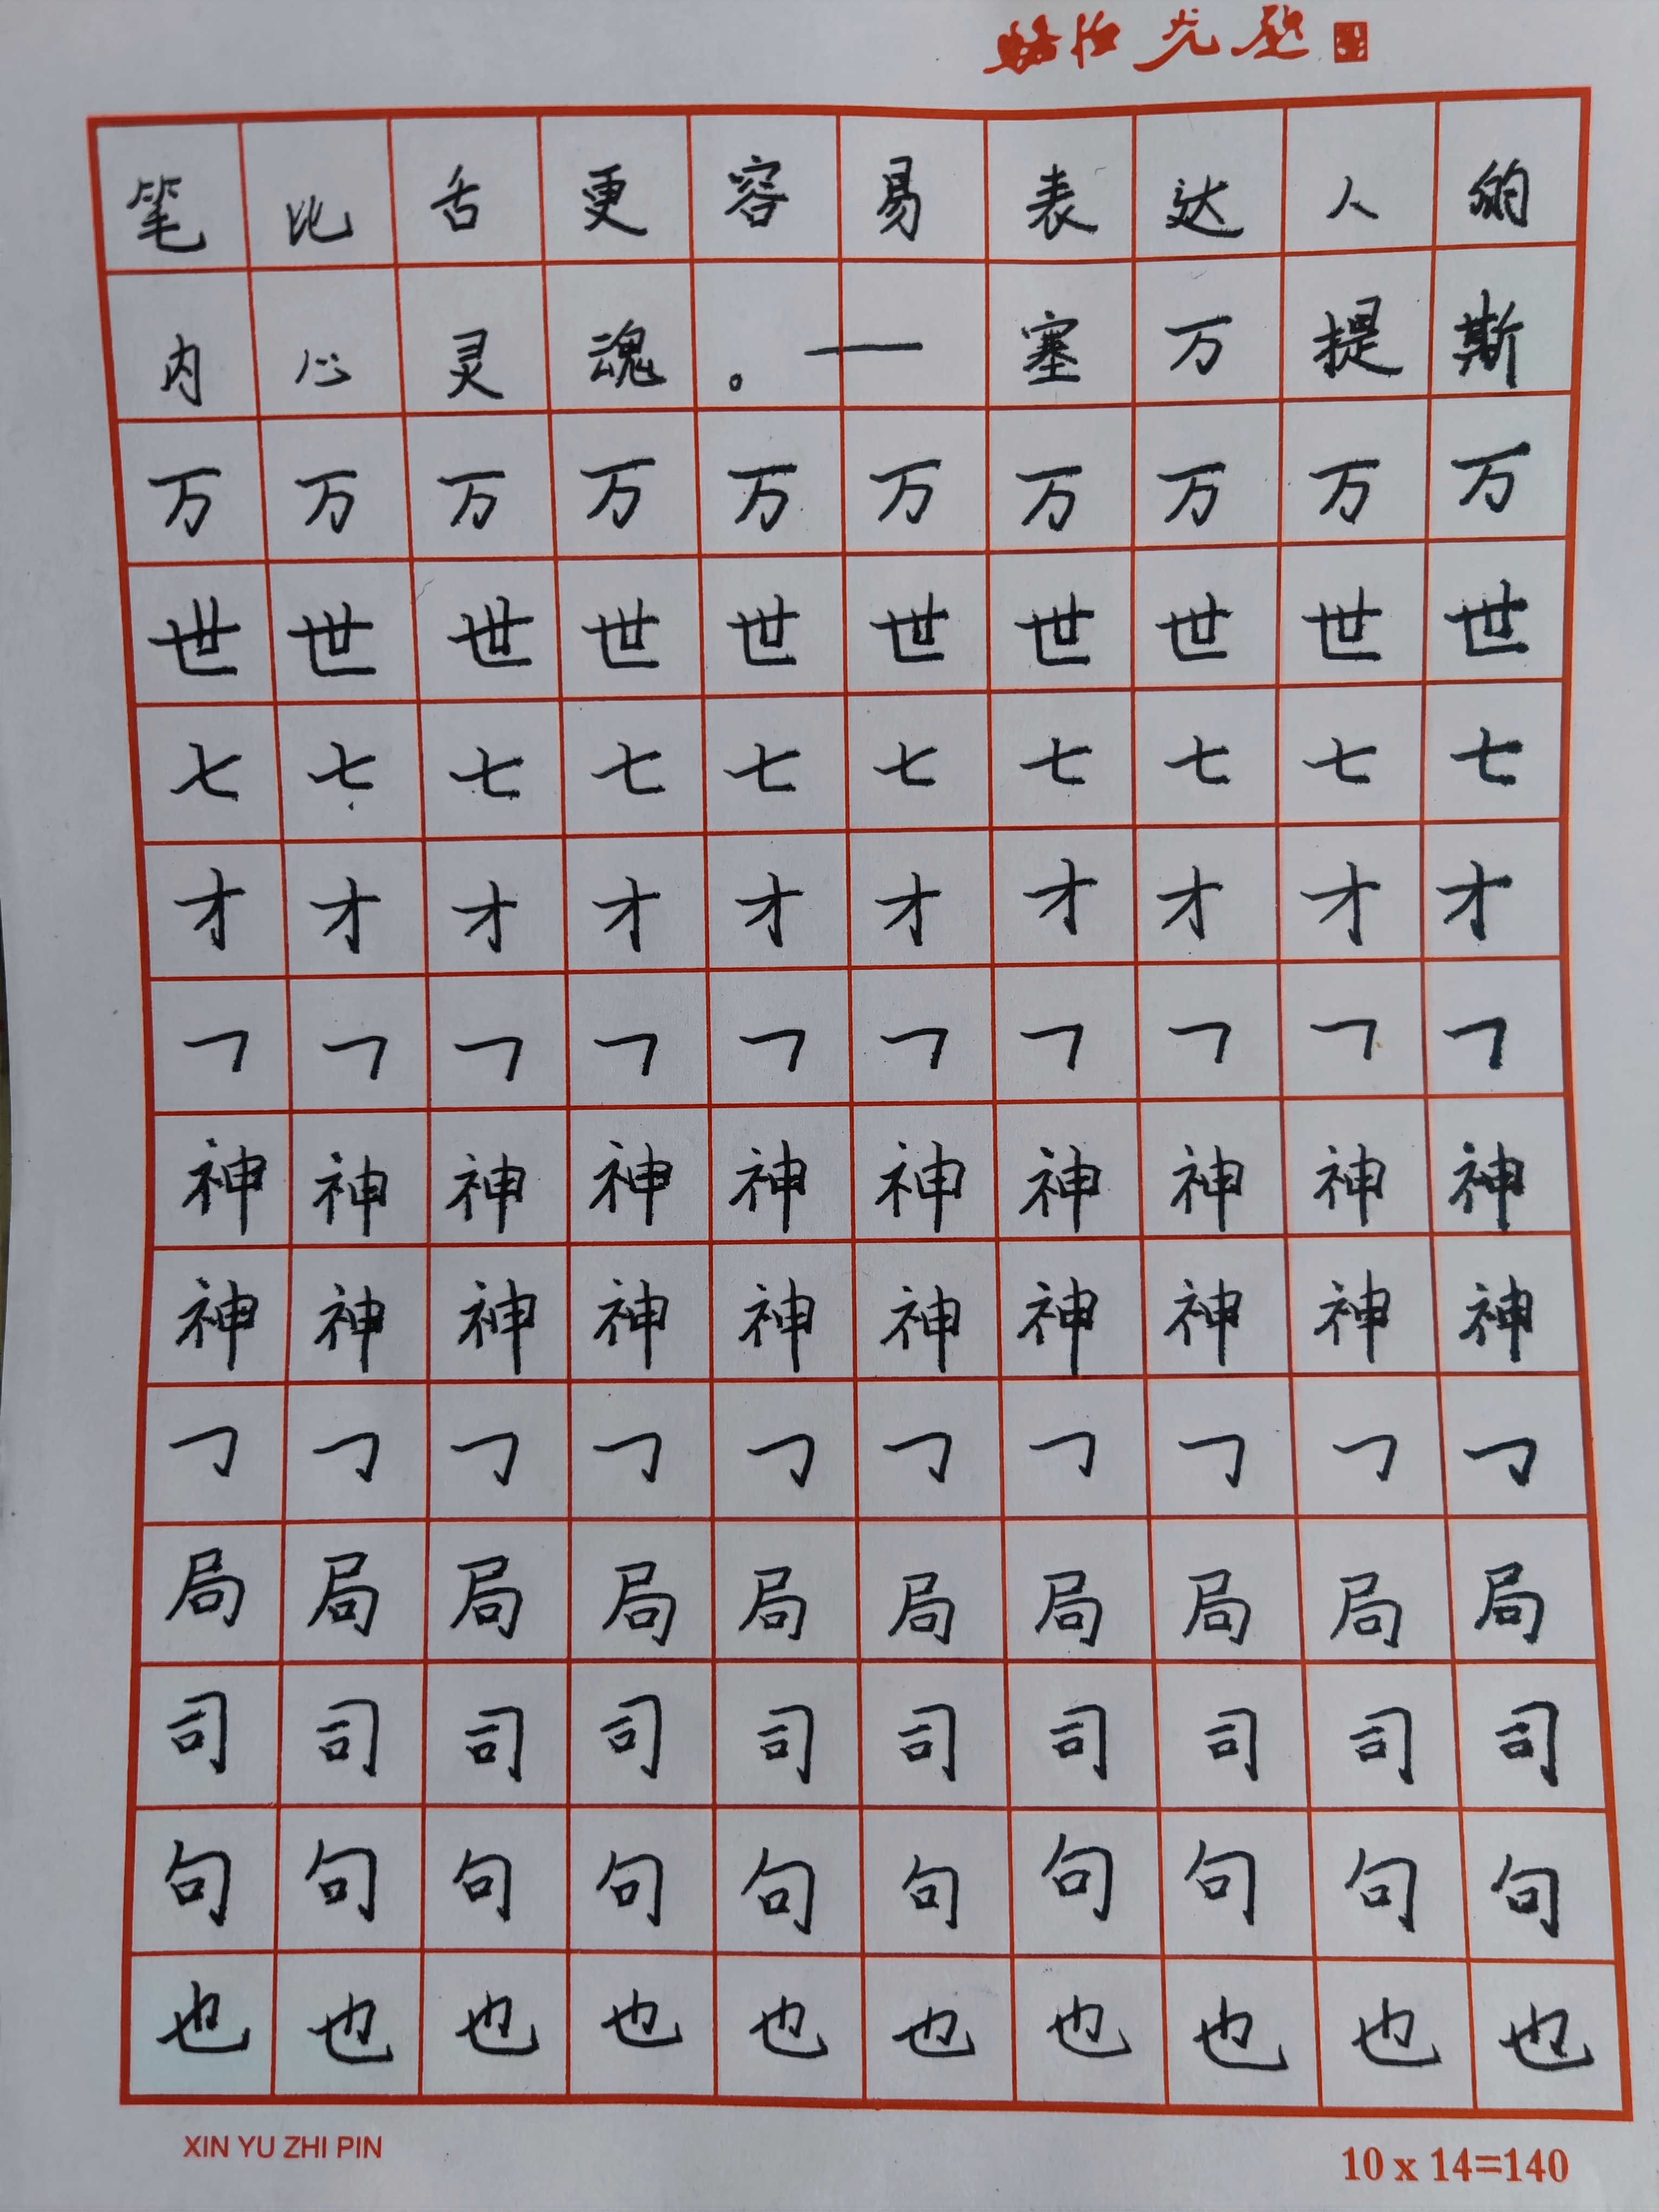 笔比舌更容易表达人的
内心灵魂。—塞万提斯
万万万万万万万万万万
世世世世世世世世世世
七七七七七七七七七七
才才才才才才才才才才
𠃍𠃍𠃍𠃍𠃍𠃍𠃍𠃍𠃍𠃍
神神神神神神神神神神
神神神神神神神神神神
𠃌𠃌𠃌𠃌𠃌𠃌𠃌𠃌𠃌𠃌
局局局局局局局局局局
司司司司司司司司司司
句句句句句句句句句句
也也也也也也也也也也
XIN YU ZHI PIN
10 x 14=140